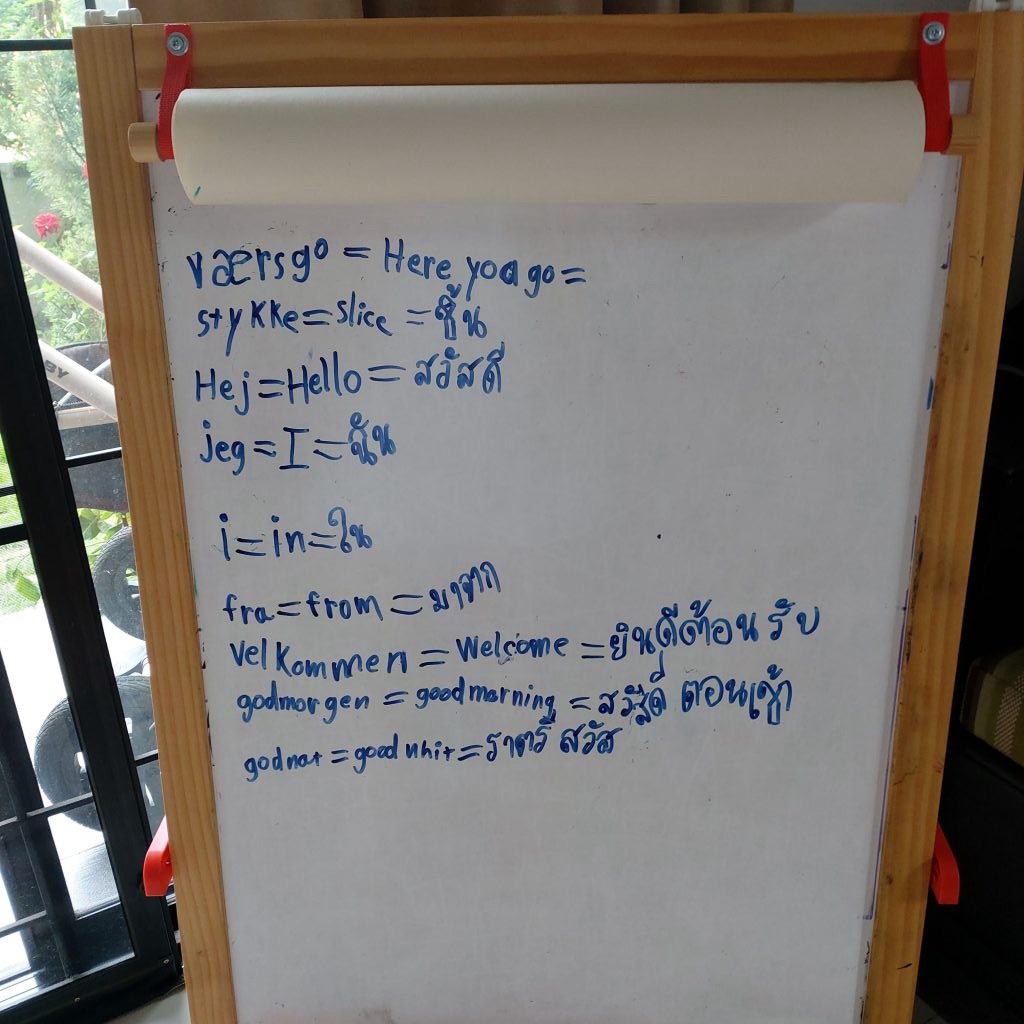 værsgo = Here you go =
stykke = slice = ชิ้น
Hej = Hello = สวัสดี
jeg = I = ฉัน
i = in = ใน
fra = from = มาจาก
velkommen = Welcome = ยินดีต้อนรับ
godmorgen = good morning = สวัสดี ตอนเช้า
godnat = good nhit = ราตรี สวัส
BY